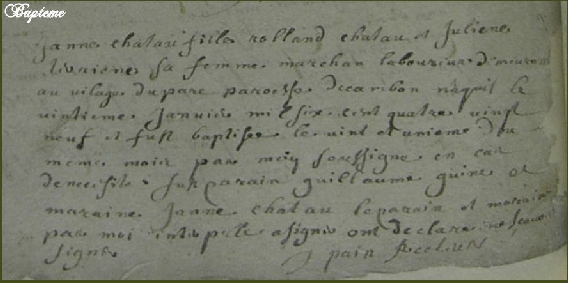 Bapteme
janne chatau fille rolland chatau et juliene
sa femme marchan laboureur demeurans
au vilage du parc paroesse de cambon naquit le
vintieme janvier mil six cent quatre vingt
neuf et fust baptisee le vint et unieme du
meme mois par moy sousigne en cas
de necesite fut parain guillaume guine et
maraine janne chatau le parain et maraine
par moi interpele a signer ont declare ne scavoir
signer